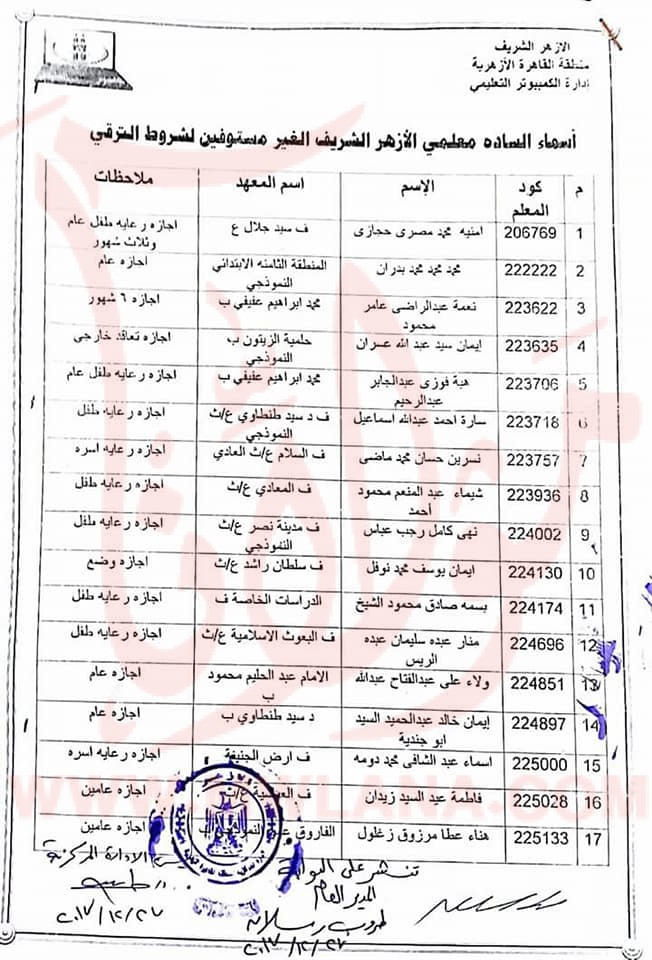 الازهر الشريف
منطقة القاهرة الأزهرية
إدارة الكمبيوتر التعليمي
أسماء الساده معلمي الأزهر الشريف الغير مستوفين لشروط الترقي
م كود المعلم الإسم اسم المعهد ملاحظات
1 206769 امنيه محمد مصرى حجازى ف سيد جلال ع اجازه رعايه طفل عام وثلاث شهور
2 222222 محمد محمد محمد بدران المنطقة الثامنه الابتدائي النموذجي اجازه عام
3 223622 نعمة عبدالراضى عامر محمود محمد ابراهيم عفيفي ب اجازه ٦ شهور
4 223635 إيمان سيد عبد الله عسران حلمية الزيتون ب النموذجي اجازه تعاقد خارجي
5 223706 هبة فوزى عبدالجابر عبدالرحيم محمد ابراهيم عفيفي ب اجازه رعايه طفل عام
6 223718 سارة احمد عبدالله اسماعيل ف د سيد طنطاوي ع/ث النموذجي اجازه رعايه طفل
7 223757 نسرين حسان محمد ماضى ف السلام ع/ث العادي اجازه رعايه اسره
8 223936 شيماء عبد المنعم محمود أحمد ف المعادي ع/ث اجازه رعايه طفل
9 224002 نهى كامل رجب عباس ف مدينة نصر ع/ث النموذجي اجازه رعايه طفل
10 224130 ايمان يوسف محمد نوفل ف سلطان راشد ع/ث اجازه وضع
11 224174 بسمه صادق محمود الشيخ الدراسات الخاصة ف اجازه رعايه طفل
12 224696 منار عبده سليمان عبده الريس ف البعوث الاسلامية ع/ث اجازه رعايه طفل
13 224851 ولاء على عبدالفتاح عبدالله الامام عبد الحليم محمود ب اجازه عام
14 224897 إيمان خالد عبدالحميد السيد ابو جندية د سيد طنطاوي ب اجازه عام
15 225000 اسماء عبد الشافى محمد دومه ف ارض الجنيفة اجازه رعايه اسره
16 225028 فاطمة عبد السيد زيدان ف ع/ث اجازه عامين
17 225133 هناء عطا مرزوق زغلول الفاروق النموذجي ب اجازه عامين
تنشر على البوابة
المدير العام
٢٠١٧/١٢/٢٧
الادارة المركزية
٢٠١٧/١٢/٢٧